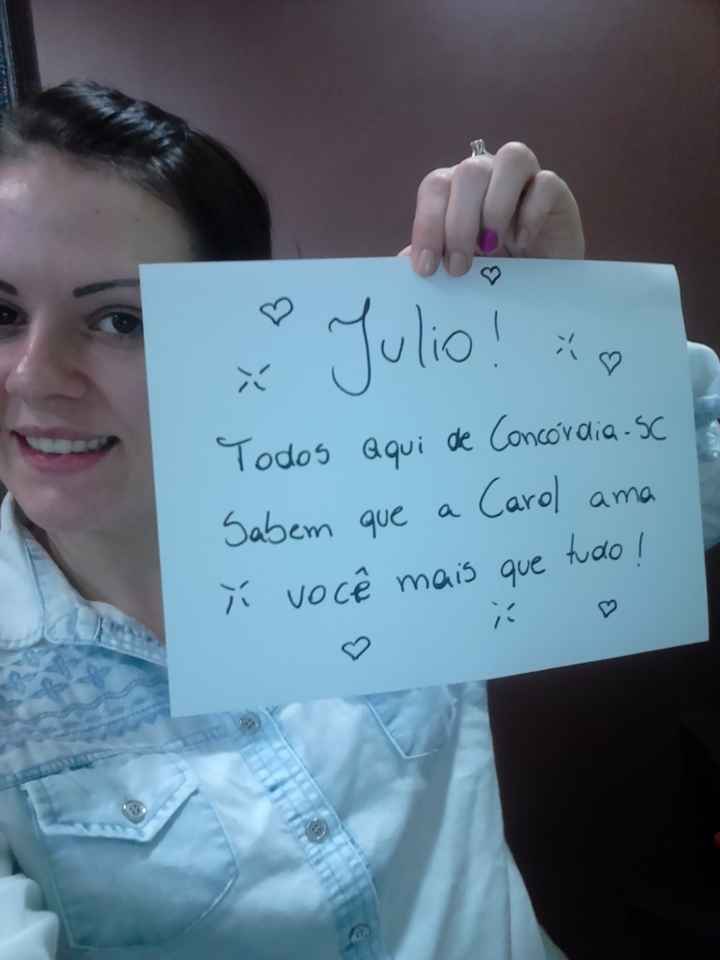 Julio!
Todos aqui de Concórdia-SC
Sabem que a Carol ama
você mais que tudo!